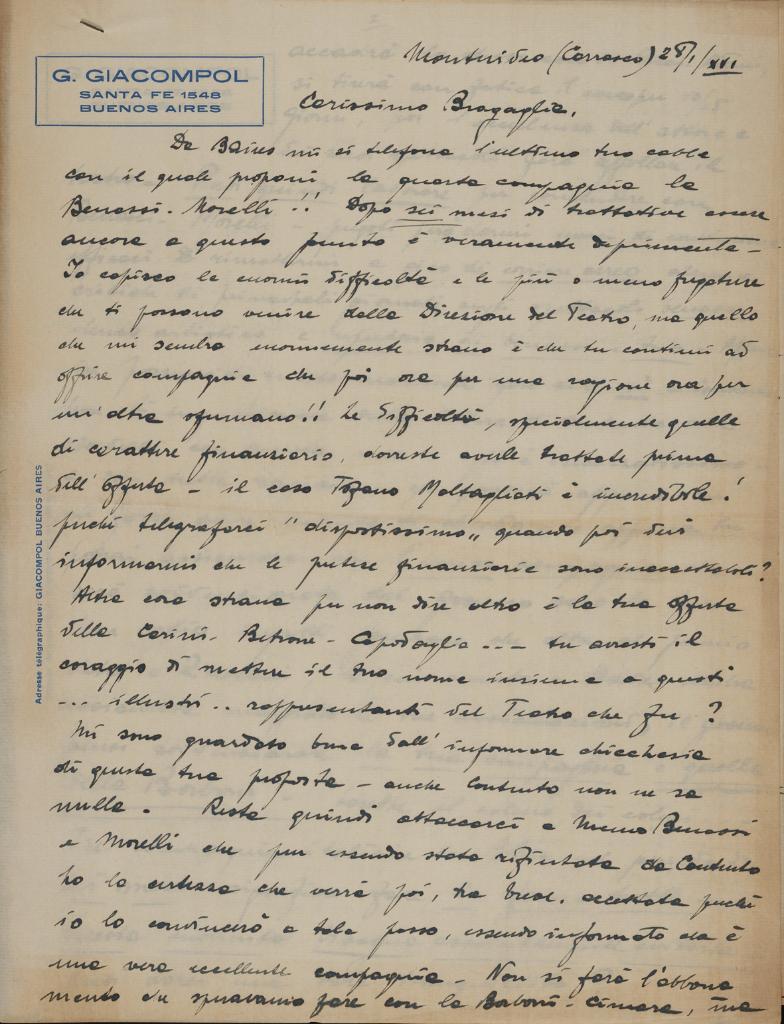 G. GIACOMPOL
SANTA FE 1548
BUENOS AIRES
Montevideo (Carrasco) 28/1/XVI
Carissimo Bragaglia.
Da Baires mi si telefona l'ultimo tuo cable
con il quale proponi la quarta compagnia la
Benassi-Morelli!! Dopo sei mesi di trattative essere
ancora a questo punto è veramente deprimente -
Io capisco le enormi difficoltà e le più o meno fregature
che ti possono venire dalla Direzione del Teatro, ma quello
che mi sembra enormemente strano è che tu continui ad
offrire compagnie che poi ora per una ragione ora per
un'altra sfumano!! Le difficoltà, specialmente quelle
di carattere finanziario, dovreste averle trattate prima
dell'offerta - il caso Tofano Maltagliati è incredibile!
perchè telegrafarci "dispostissimo" quando poi devi
informarmi che le pretese finanziarie sono inaccettabili?
Altra cosa strana per non dire altro è la tua offerta
della Carini - Betrone - Capodaglia --- tu avresti il
coraggio di mettere il tuo nome insieme a questi
... illustri .. rappresentanti del Teatro che fu?
Mi sono guardato bene dall'informare chicchesia
di questa tua proposta - anche Contruto non ne sa
nulla. Resta quindi attaccarci a Memo Benassi
e Morelli che pur essendo stata rifiutata da Contruto
ho la certezza che verrà poi, tra accettata perchè
io lo convincerò a tale passo, essendo informato che è
una vera eccellente compagnia - Non si farà l'abbona
mento che speravamo fare con la Barboni - Cimara, ma
Adresse télégraphique: GIACOMPOL BUENOS AIRES